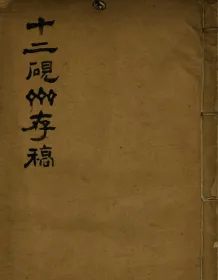 十二硯州存稿